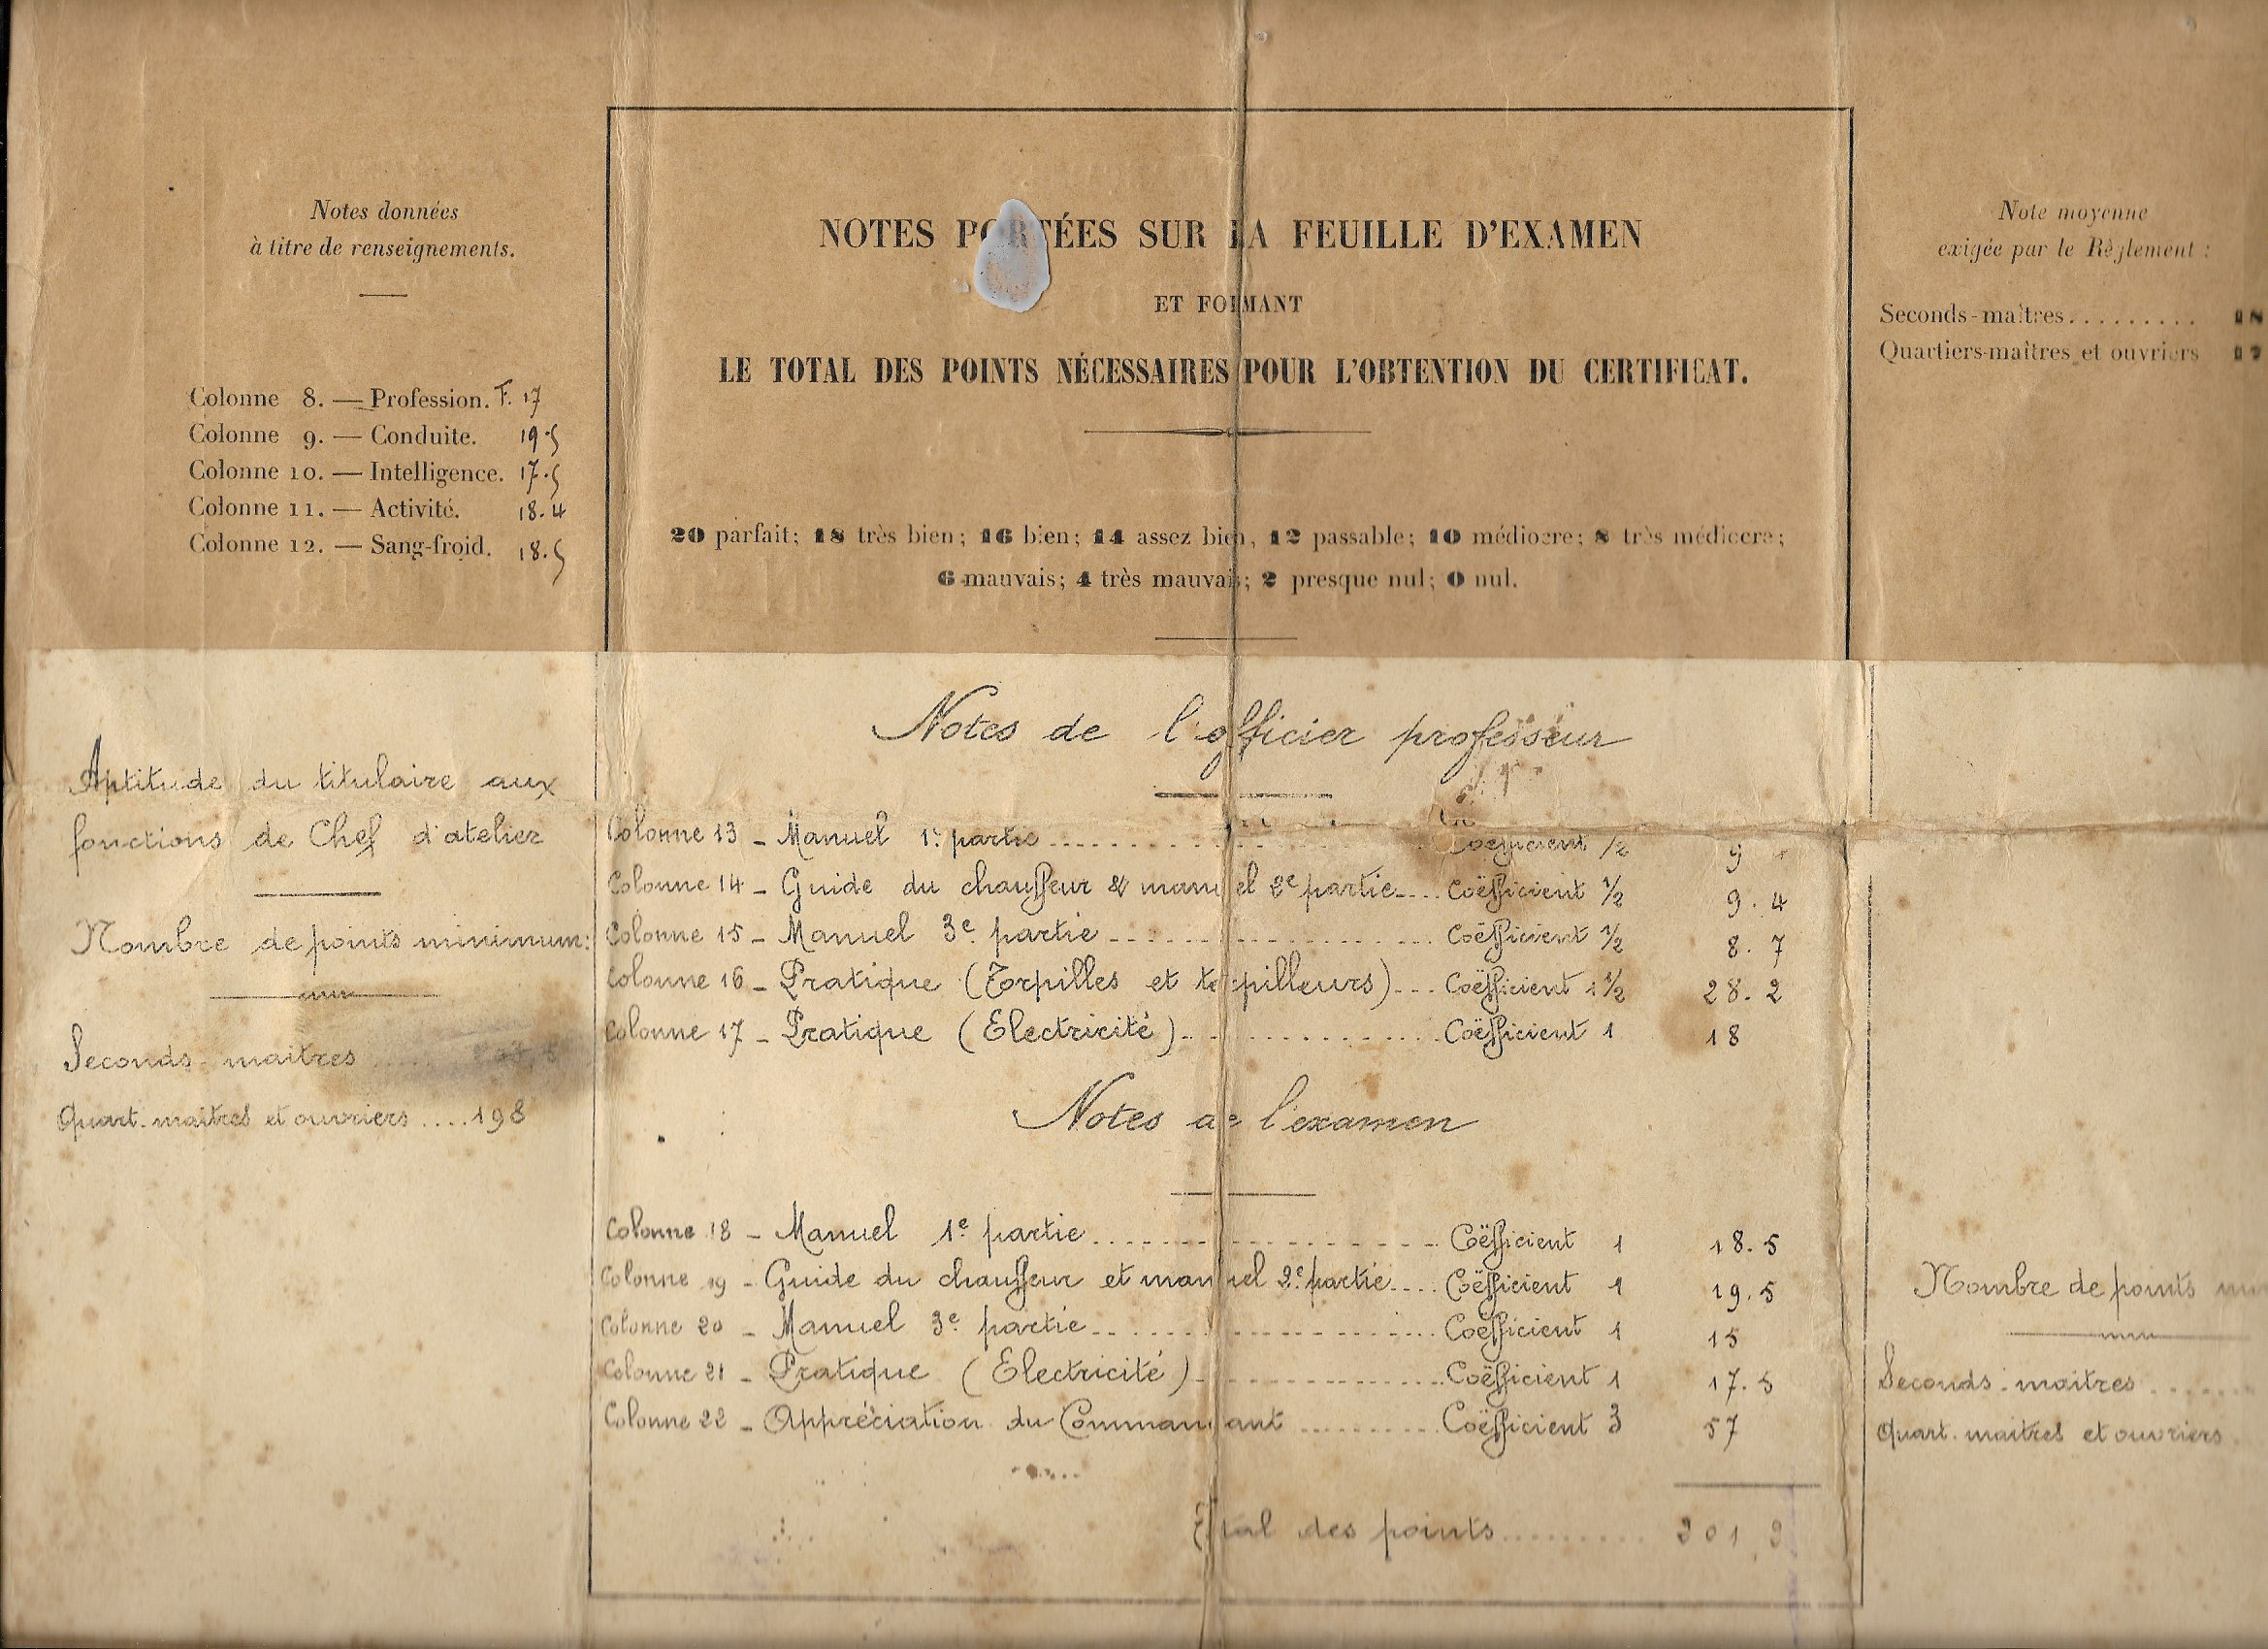 Notes données
à titre de renseignements.
Colonne 8. — Profession. F. 17
Colonne 9. — Conduite. 19.5
Colonne 10. — Intelligence. 17.5
Colonne 11. — Activité. 18.4
Colonne 12. — Sang-froid. 18.5
NOTES PORTÉES SUR LA FEUILLE D'EXAMEN
ET FORMANT
LE TOTAL DES POINTS NÉCESSAIRES POUR L'OBTENTION DU CERTIFICAT.
20 parfait; 18 très bien; 16 bien; 14 assez bien, 12 passable; 10 médiocre; 8 très médiocre;
6 mauvais; 4 très mauvais; 2 presque nul; 0 nul.
Note moyenne
exigée par le Règlement :
Seconds-maîtres......... 18
Quartiers-maîtres et ouvriers
Aptitude du titulaire aux
fonctions de Chef d'atelier
Nombre de points minimum:
Seconds-maitres
Quart. maîtres et ouvriers....198
Notes de l'officier professeur
Colonne 13 - Manuel 1e partie Coefficient 1/2 9
Colonne 14 - Guide du chauffeur & manuel 2e partie.... Coëfficient 1/2 9.4
Colonne 15 - Manuel 3e partie Coëfficient 1/2 8.7
Colonne 16 - Pratique (Torpilles et torpilleurs)... Coëfficient 1 1/2 28.2
Colonne 17 - Pratique (Electricité) Coëfficient 1 18
Notes de l'examen
Colonne 18 - Manuel 1e partie Coëfficient 1 18.5
Colonne 19 - Guide du chauffeur et manuel 2e partie.... Coëfficient 1 19.5
Colonne 20 - Manuel 3e partie Coëfficient 1 15
Colonne 21 - Pratique (Electricité) Coëfficient 1 17.5
Colonne 22 - Appréciation du Commandant Coëfficient 3 57
Total des points
Nombre de points
Seconds-maitres
Quart. maitres et ouvriers